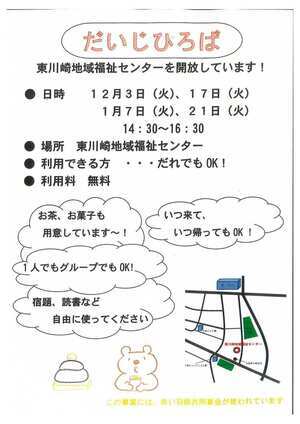 だいじひろば
東川崎地域福祉センターを開放しています！
● 日時　１２月３日（火）、１７日（火）
１月７日（火）、２１日（火）
１４：３０～１６：３０
● 場所　東川崎地域福祉センター
● 利用できる方　・・・だれでもOK！
● 利用料　無料
お茶、お菓子も
用意しています～！
いつ来て、
いつ帰ってもOK！
１人でもグループでもOK!
宿題、読書など
自由に使ってください
東川崎地域福祉センター
この事業には、赤い羽根共同募金が使われています